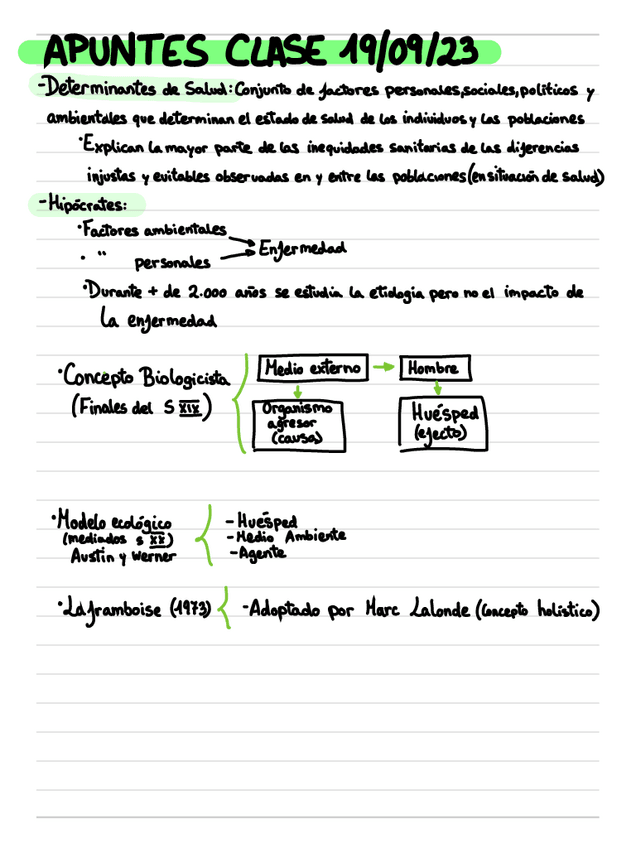 APUNTES CLASE 19/09/23
-Determinantes de Salud: Conjunto de factores personales, sociales, políticos y
ambientales que determinan el estado de salud de los individuos y las poblaciones
·Explican la mayor parte de las inequidades sanitarias de las diferencias
injustas y evitables observadas en y entre las poblaciones (en situación de salud)
-Hipócrates:
·Factores ambientales
Enfermedad
· " personales
·Durante + de 2.000 años se estudia la etiología pero no el impacto de
la enfermedad
·Concepto Biologicista
(Finales del S XIX)
Medio externo → Hombre
Organismo
agresor
(causa)
Huésped
(efecto)
·Modelo ecológico
(mediados s XX)
Austin y Werner
- Huésped
- Medio Ambiente
- Agente
·Laframboise (1973)
-Adoptado por Marc Lalonde (Concepto holístico)